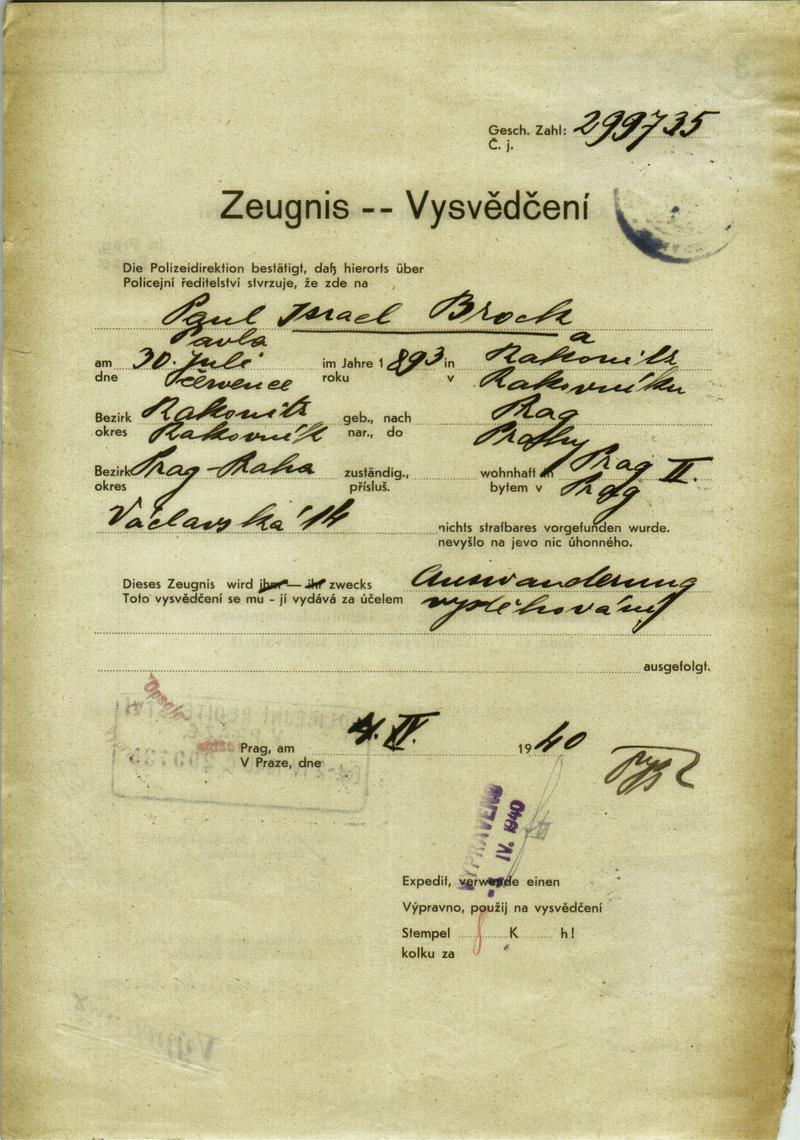 Gesch. Zahl: 299735
Č. j.
Zeugnis -- Vysvědčení
Die Polizeidirektion bestätigt, daß hierorts über
Policejní ředitelství stvrzuje, že zde na
Paul Israel Brock
Pavla a
am 30. Juli im Jahre 1893 in Rakonitz
dne července roku v Rakovníku
Bezirk Rakonitz geb., nach Prag
okres Rakovník nar., do Prahy
Bezirk Prag-Praha zuständig., wohnhaft in Prag II.
okres přísluš. bytem v Prag
Václavská 14 nichts strafbares vorgefunden wurde.
nevyšlo na jevo nic úhonného.
Dieses Zeugnis wird ihm — ihr zwecks Auswanderung
Toto vysvědčení se mu - jí vydává za účelem vystěhování
ausgefolgt.
Prag, am 4. IV. 1940
V Praze, dne
VYPRAVENO
IV. 1940
Expedit, verwende einen
Výpravno, použij na vysvědčení
Stempel K h!
kolku za